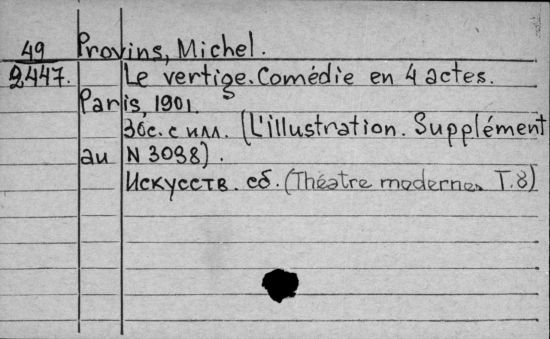 49 Provins, Michel.
2447. Le vertige. Comédie en 4 actes.
Paris, 1901.
36с. с илл. (L'illustration. Supplément
au N 3098).
Искусств. сб. (Théatre moderne. T.8)